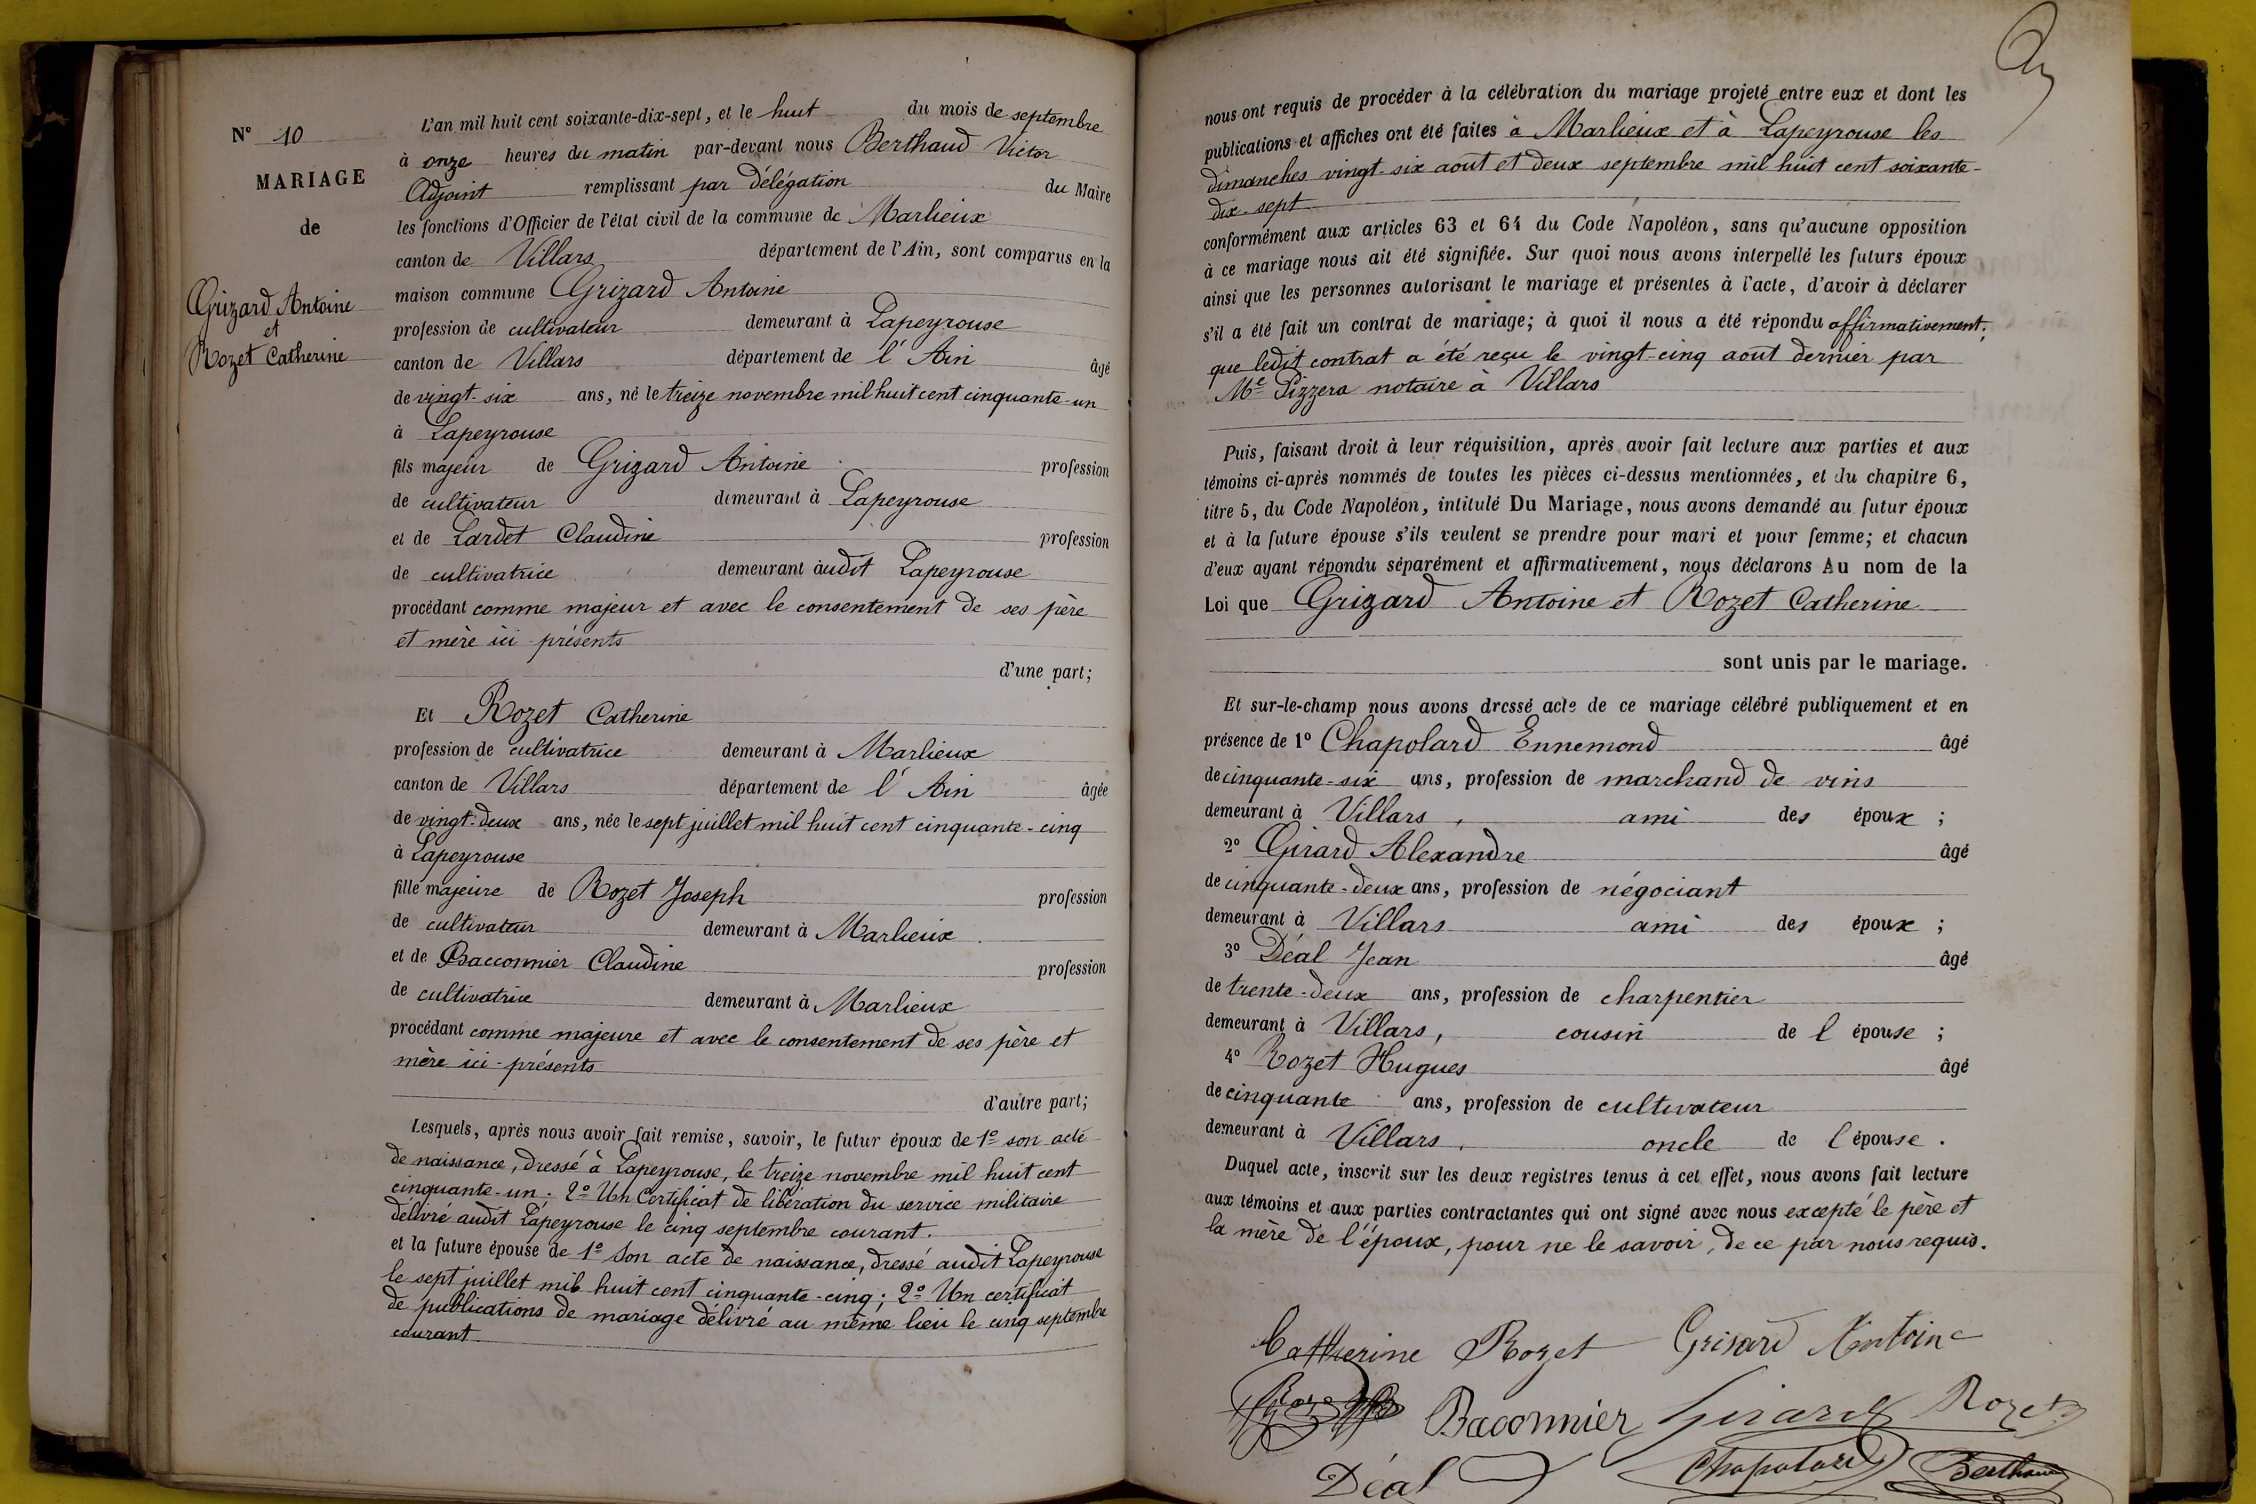 N° 10
MARIAGE
de
Grizard Antoine
et
Rozet Catherine
L'an mil huit cent soixante-dix-sept, et le huit du mois de septembre
à onze heures du matin par-devant nous Berthaud Victor
Adjoint remplissant par délégation du Maire
les fonctions d'Officier de l'état civil de la commune de Marlieux
canton de Villars département de l'Ain, sont comparus en la
maison commune Grizard Antoine
profession de cultivateur demeurant à Lapeyrouse
canton de Villars département de l'Ain âgé
de vingt-six ans, né le treize novembre mil huit cent cinquante-un
à Lapeyrouse
fils majeur de Grizard Antoine profession
de cultivateur demeurant à Lapeyrouse
et de Lardet Claudine profession
de cultivatrice demeurant àudit Lapeyrouse
procédant comme majeur et avec le consentement de ses père
et mère ici présents
d'une part;
Et Rozet Catherine
profession de cultivatrice demeurant à Marlieux
canton de Villars département de l'Ain âgée
de vingt-deux ans, née le sept juillet mil huit cent cinquante-cinq
à Lapeyrouse
fille majeure de Rozet Joseph profession
de cultivateur demeurant à Marlieux
et de Bacconnier Claudine profession
de cultivatrice demeurant à Marlieux
procédant comme majeure et avec le consentement de ses père et
mère ici-présents
d'autre part;
Lesquels, après nous avoir fait remise, savoir, le futur époux de 1° son acte
de naissance, dressé à Lapeyrouse, le treize novembre mil huit cent
cinquante-un. 2° Un Certificat de libération du service militaire
délivré audit Lapeyrouse le cinq septembre courant.
et la future épouse de 1° Son acte de naissance, dressé audit Lapeyrouse
le sept juillet mil huit cent cinquante-cinq; 2° Un certificat
de publications de mariage délivré au même lieu le cinq septembre
courant
nous ont requis de procéder à la célébration du mariage projeté entre eux et dont les
publications et affiches ont été faites à Marlieux et à Lapeyrouse les
dimanches vingt-six août et deux septembre mil huit cent soixante-
dix-sept
conformément aux articles 63 et 64 du Code Napoléon, sans qu'aucune opposition
à ce mariage nous ait été signifiée. Sur quoi nous avons interpellé les futurs époux
ainsi que les personnes autorisant le mariage et présentes à l'acte, d'avoir à déclarer
s'il a été fait un contrat de mariage; à quoi il nous a été répondu affirmativement;
que ledit contrat a été reçu le vingt-cinq août dernier par
Me Pizzera notaire à Villars
Puis, faisant droit à leur réquisition, après avoir fait lecture aux parties et aux
témoins ci-après nommés de toutes les pièces ci-dessus mentionnées, et du chapitre 6,
titre 5, du Code Napoléon, intitulé Du Mariage, nous avons demandé au futur époux
et à la future épouse s'ils veulent se prendre pour mari et pour femme; et chacun
d'eux ayant répondu séparément et affirmativement, nous déclarons Au nom de la
Loi que Grizard Antoine et Rozet Catherine
sont unis par le mariage.
Et sur-le-champ nous avons dressé acte de ce mariage célébré publiquement et en
présence de 1° Chapolard Ennemond âgé
de cinquante-six ans, profession de marchand de vins
demeurant à Villars, ami des époux;
2° Girard Alexandre âgé
de cinquante-deux ans, profession de négociant
demeurant à Villars ami des époux;
3° Déal Jean âgé
de trente-deux ans, profession de charpentier
demeurant à Villars, cousin de l'épouse;
4° Rozet Hugues âgé
de cinquante ans, profession de cultivateur
demeurant à Villars, oncle de l'épouse.
Duquel acte, inscrit sur les deux registres tenus à cet effet, nous avons fait lecture
aux témoins et aux parties contractantes qui ont signé avec nous excepté le père et
la mère de l'époux, pour ne le savoir, de ce par nous requis.
Catherine Rozet Grisard Antoine
Baconnier Girard Rozet
Déal Chapolard Berthaud